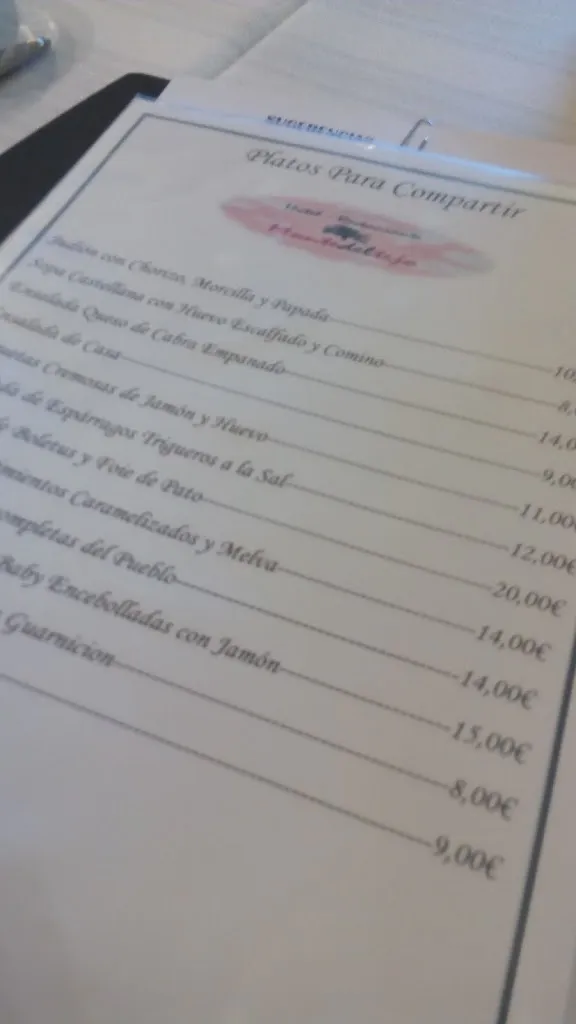 SUGERENCIAS
Platos Para Compartir
Hotel Restaurante
Judión con Chorizo, Morcilla y Papada 10,
Sopa Castellana con Huevo Escalfado y Comino 8,
Ensalada Queso de Cabra Empanado 14,0
nsalada de Casa 9,00
uetas Cremosas de Jamón y Huevo 11,00
da de Espárragos Trigueros a la Sal 12,00€
de Boletus y Foie de Pato 20,00€
mientos Caramelizados y Melva 14,00€
ompletas del Pueblo 14,00€
Baby Encebolladas con Jamón 15,00€
Guarnicion 8,00€
9,00€